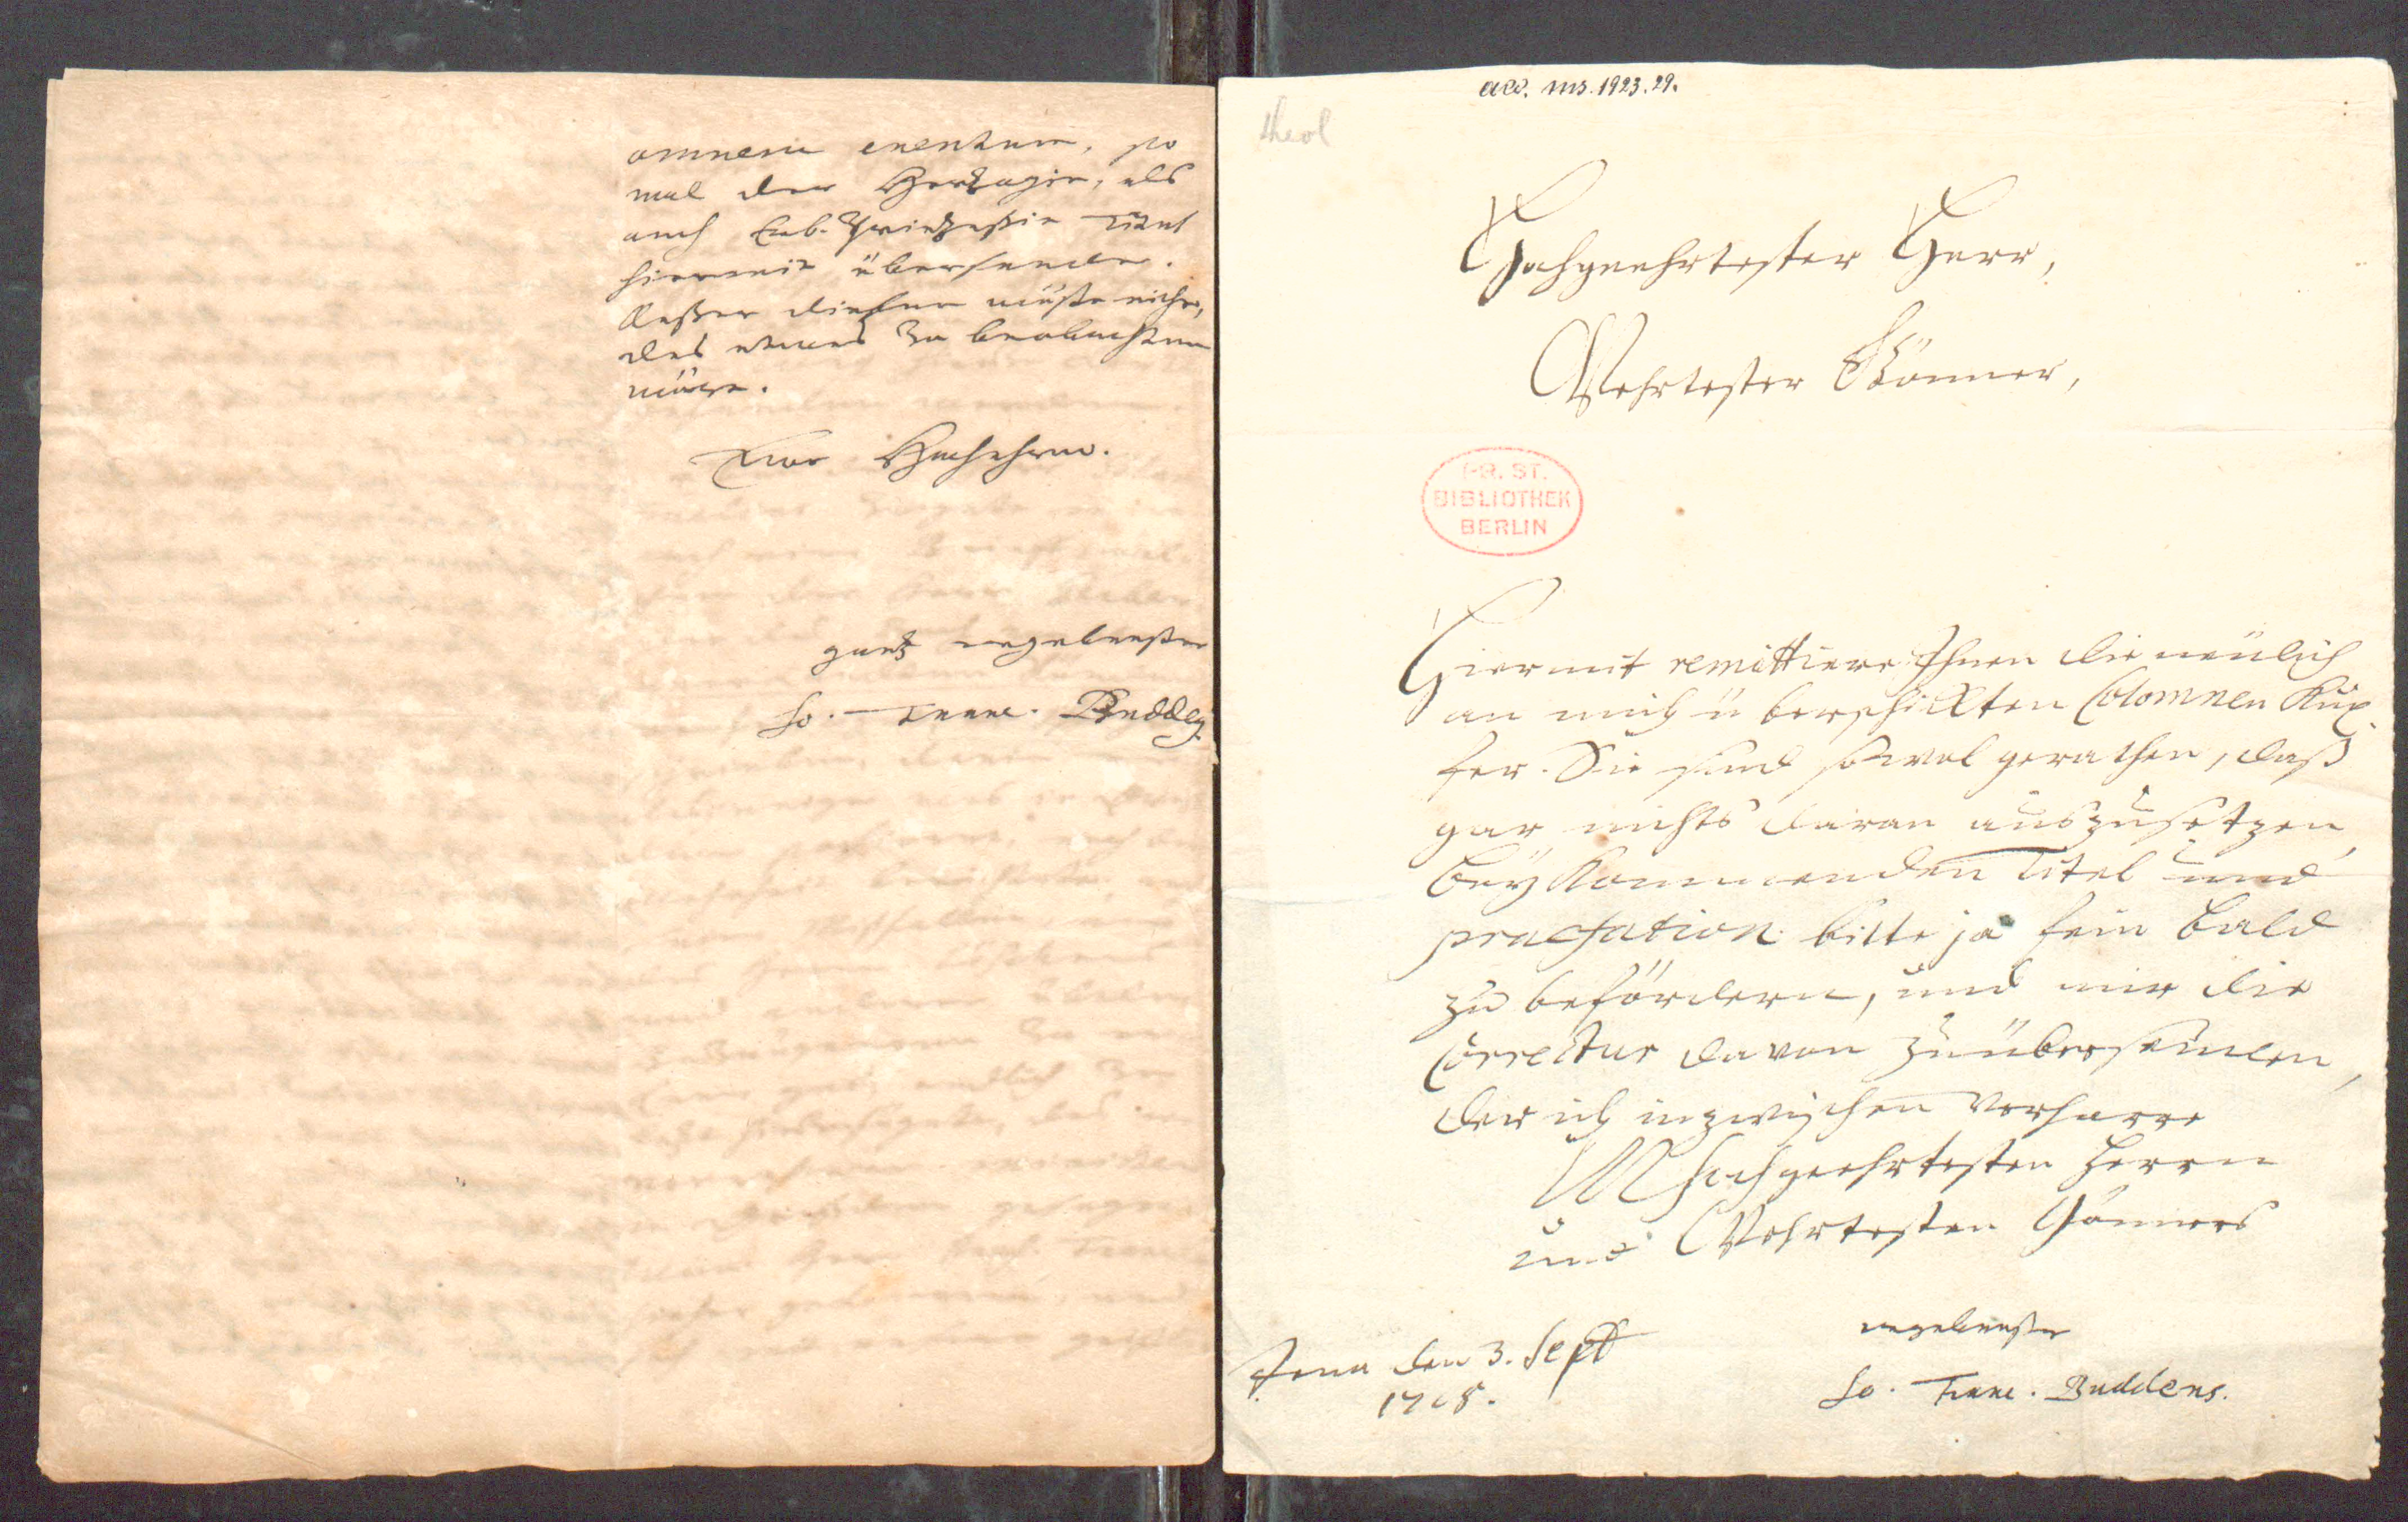 omnem eventum, so
mal der Hertzogin, als
auch Erb-Printzeßin Titul
hiermit übersende.
Außer diesen wüste nicht,
das etwas zu beobachten
wäre.
Ew. Hochehrw.
gantz ergebenster
Jo. Franc. Buddeus
acc. ms. 1923.29.
theol
Hochgeehrtester Herr,
Wehrtester Gönner,
PR. ST.
BIBLIOTHEK
BERLIN
Hiermit remittiere Ihnen die neülich
an mich überschickten Colomnen Küp
fer. Sie sind sowol gerathen, daß
gar nichts daran auszusetzen,
beykommenden Titel und
praefation bitte ja fein bald
zu befördern, und mir die
Correctur davon zuübersenden,
der ich inzwischen verharre
M hochgeehrtesten Herrn
und Wehrtesten Gönners
Jena den 3. Sept
1718.
ergebenster
Jo. Franc. Buddeus.